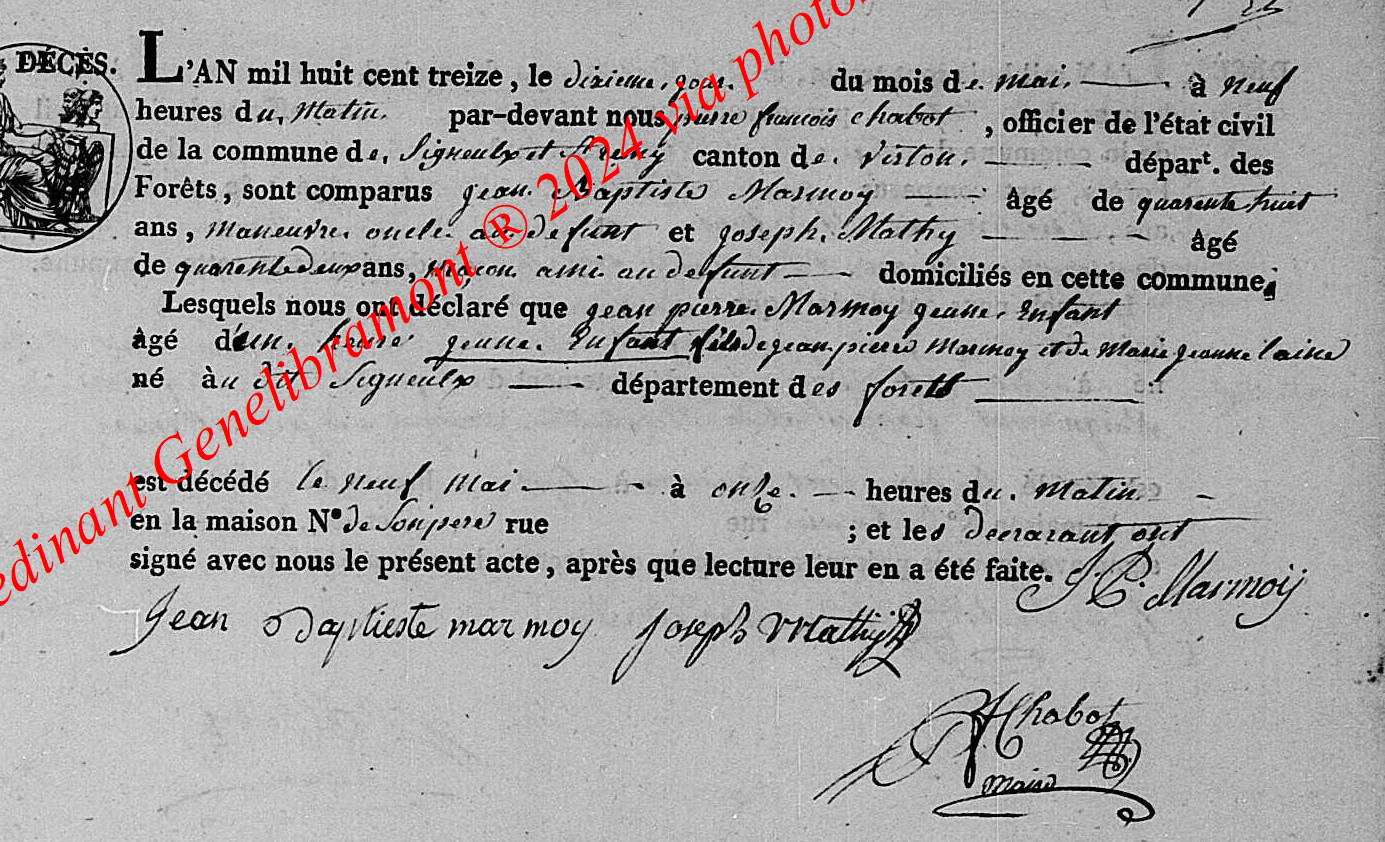 DÉCÈS. L'AN mil huit cent treize, le dixieme jour du mois de mai. à neuf
heures du Matin par-devant nous pierre francois chabot, officier de l'état civil
de la commune de Signeulx et canton de Virton. départ. des
Forêts, sont comparus jean Baptiste Marmoy âgé de quarente huit
ans, maneuvre oncle au defunt et joseph Mathy âgé
de quarente deux ans, maçon ami au defunt domiciliés en cette commune;
Lesquels nous ont déclaré que jean pierre Marmoy jeune Enfant
âgé d'un heure jeune Enfant fils de jean pierre Marmoy et de Marie jeanne laine
né à u dit Signeulx département des forets
est décédé le neuf mai à onze heures du Matin
en la maison N° de Son pere rue ; et les decrarant ont
signé avec nous le présent acte, après que lecture leur en a été faite. J. P. Marmoij
Jean Baptieste marmoy joseph Mathij
Chabot
maire
edinant Genelibramont ® 2024 via photo